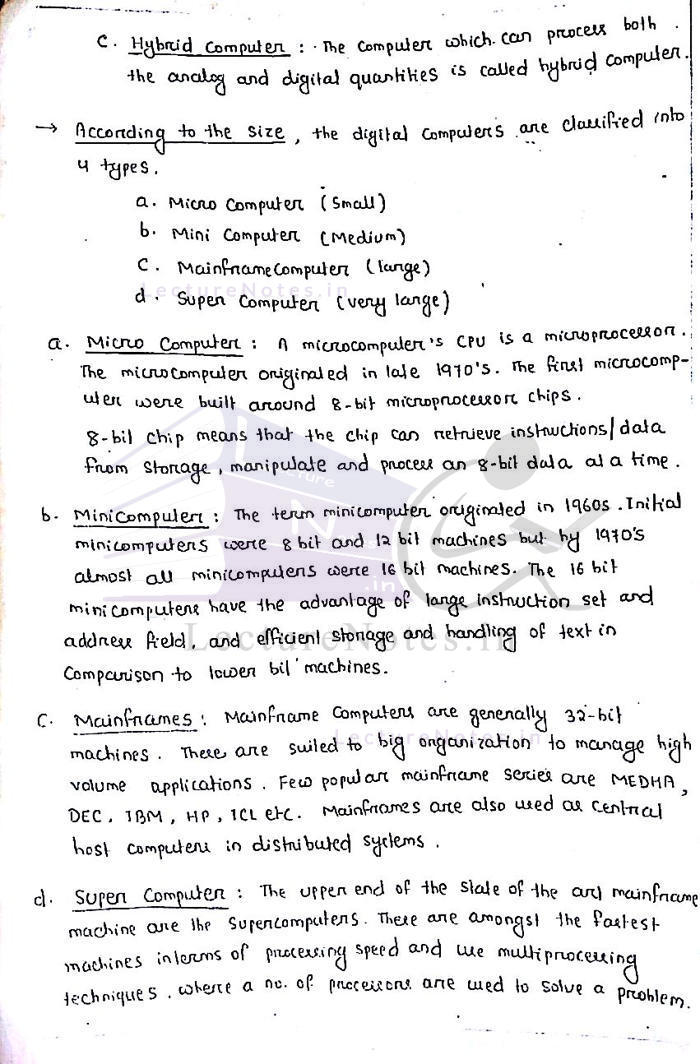 C. Hybrid Computer : The Computer which can process both
the analog and digital quantities is called hybrid computer.
→ According to the size, the digital computers are classified into
4 types.
a. Micro Computer (Small)
b. Mini Computer (Medium)
C. Mainframe Computer (large)
LectureNotes.in
d. Super Computer (very large)
a. Micro Computer : A microcomputer's CPU is a microprocessor.
The microcomputer originated in late 1970's. The first microcomp-
uter were built around 8-bit microprocessor chips.
8-bit chip means that the chip can retrieve instructions/data
from storage, manipulate and process an 8-bit data at a time.
b. Minicomputer : The term minicomputer originated in 1960s. Initial
minicomputers were 8 bit and 12 bit machines but by 1970's
almost all minicomputers were 16 bit machines. The 16 bit
minicomputers have the advantage of large instruction set and
address field, and efficient storage and handling of text in
LectureNotes.in
Comparison to lower bit machines.
C. Mainframes : Mainframe Computers are generally 32-bit
LectureNotes.in
machines. These are suited to big organization to manage high
volume applications. Few popular mainframe series are MEDHA,
DEC, IBM, HP, ICL etc. Mainframes are also used as central
host computers in distributed systems.
d. Super Computer : The upper end of the state of the art mainframe
machine are the Supercomputers. These are amongst the fastest
machines interms of processing speed and use multiprocessing
techniques, where a no. of processors are used to solve a problem.